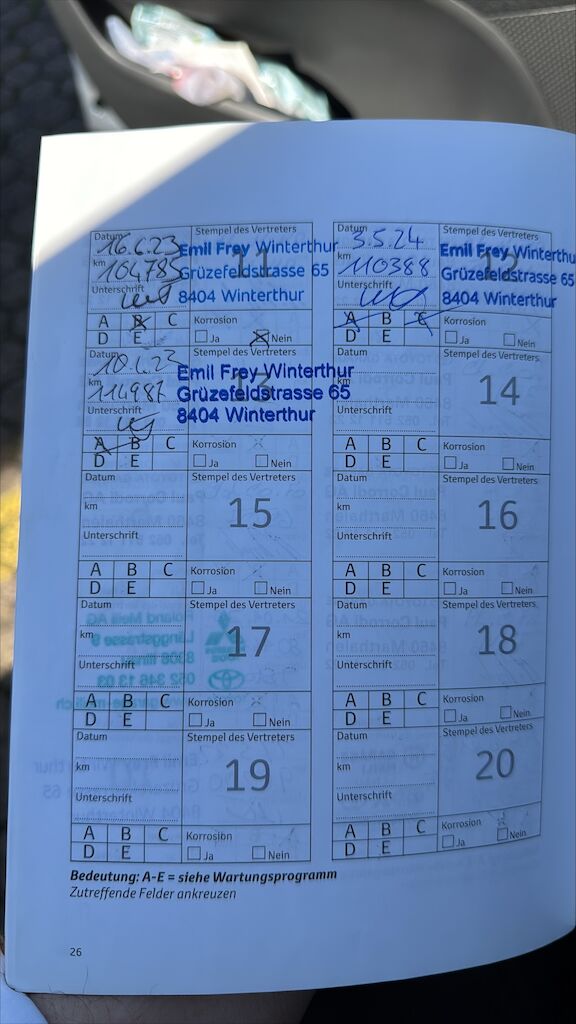 Datum 16.6.23 Stempel des Vertreters
km 104785
11
Unterschrift
Emil Frey Winterthur
Grüzefeldstrasse 65
8404 Winterthur
A B C Korrosion
D E Ja Nein
Datum 3.5.24 Stempel des Vertreters
km 110388
12
Unterschrift
Emil Frey Winterthu
Grüzefeldstrasse 65
8404 Winterthur
A B C Korrosion
D E Ja Nein
Datum
km 114987
13
Unterschrift
Emil Frey Winterthur
Grüzefeldstrasse 65
8404 Winterthur
A B C Korrosion
D E Ja Nein
Datum Stempel des Vertreters
km
14
Unterschrift
A B C Korrosion
D E Ja Nein
Datum Stempel des Vertreters
km
15
Unterschrift
A B C Korrosion
D E Ja Nein
Datum Stempel des Vertreters
km
16
Unterschrift
A B C Korrosion
D E Ja Nein
Datum Stempel des Vertreters
km
17
Unterschrift
A B C Korrosion
D E Ja Nein
Datum Stempel des Vertreters
km
18
Unterschrift
A B C Korrosion
D E Ja Nein
Datum Stempel des Vertreters
km
19
Unterschrift
A B C Korrosion
D E Ja Nein
Datum Stempel des Vertreters
km
20
Unterschrift
A B C Korrosion
D E Ja Nein
Bedeutung: A-E = siehe Wartungsprogramm
Zutreffende Felder ankreuzen
26